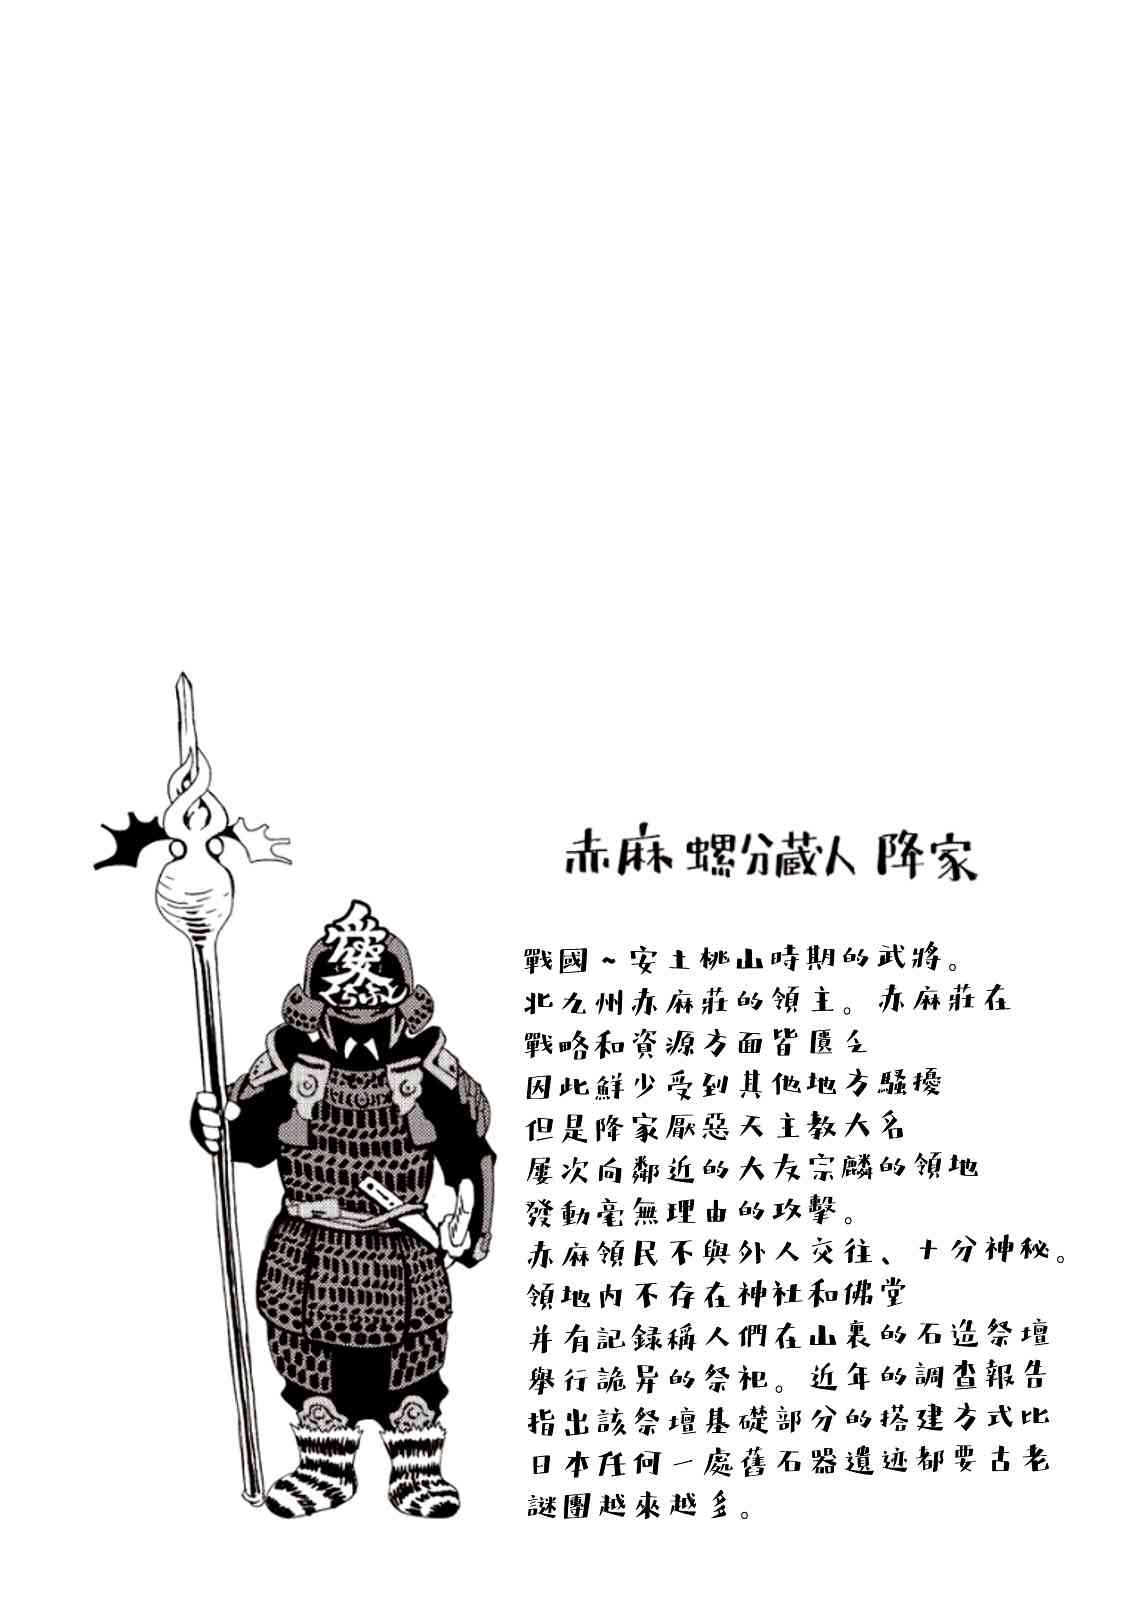 愛
くらふと
赤麻 螺分蔵人 降家
戰國～安土桃山時期的武將。
北九州赤麻莊的領主。赤麻莊在
戰略和資源方面皆匱乏
因此鮮少受到其他地方騷擾
但是降家厭惡天主教大名
屢次向鄰近的大友宗麟的領地
發動毫無理由的攻擊。
赤麻領民不與外人交往、十分神秘。
領地內不存在神社和佛堂
并有記録稱人們在山裏的石造祭壇
舉行詭异的祭祀。近年的調查報告
指出該祭壇基礎部分的搭建方式比
日本任何一處舊石器遺迹都要古老
謎團越來越多。